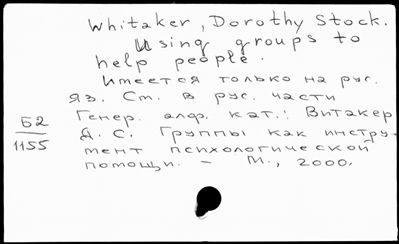 Whitaker, Dorothy Stock.
Using groups to
help people.
Имеется только на рус.
яз. См. в рус. части
Генер. алф. кат.: Витакер
Д. С. Группы как инстру-
мент психологической
помощи. – М., 2000.
Б2
1155